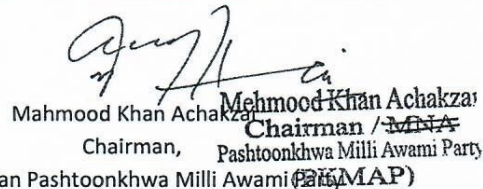 Mahmood Khan Achakzai
Chairman,
an Pashtoonkhwa Milli Awami Party
Mehmood Khan Achakzai
Chairman / MNA
Pashtoonkhwa Milli Awami Party
(PKMAP)